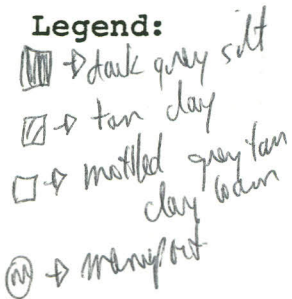 Legend:
→ dark grey silt
→ tan clay
→ mottled grey tan
clay
→ manuport